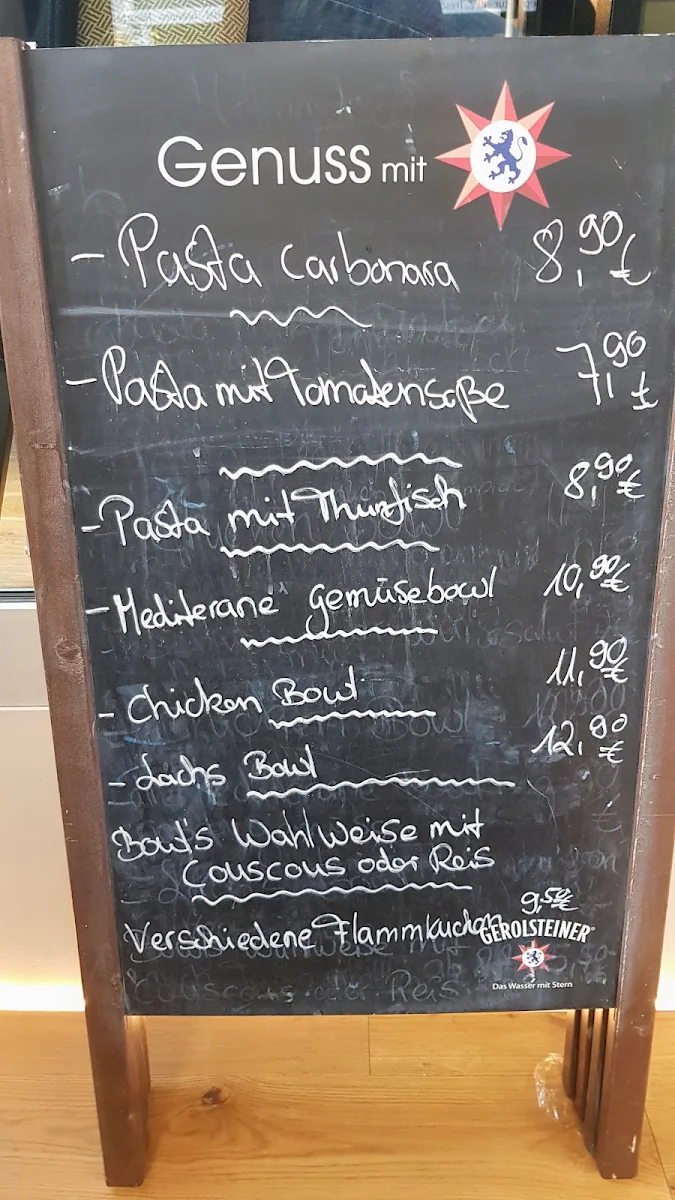 Genuss mit
- Pasta Carbonara 8,90€
- Pasta mit Tomatensoße 7,90€
- Pasta mit Thunfisch 8,90€
- Mediterane Gemüsebowl 10,90€
- Chicken Bowl 11,90€
- Lachs Bowl 12,90€
Bowl's Wahlweise mit
Couscous oder Reis
Verschiedene Flammkuchen 9,50€
GEROLSTEINER
Das Wasser mit Stern